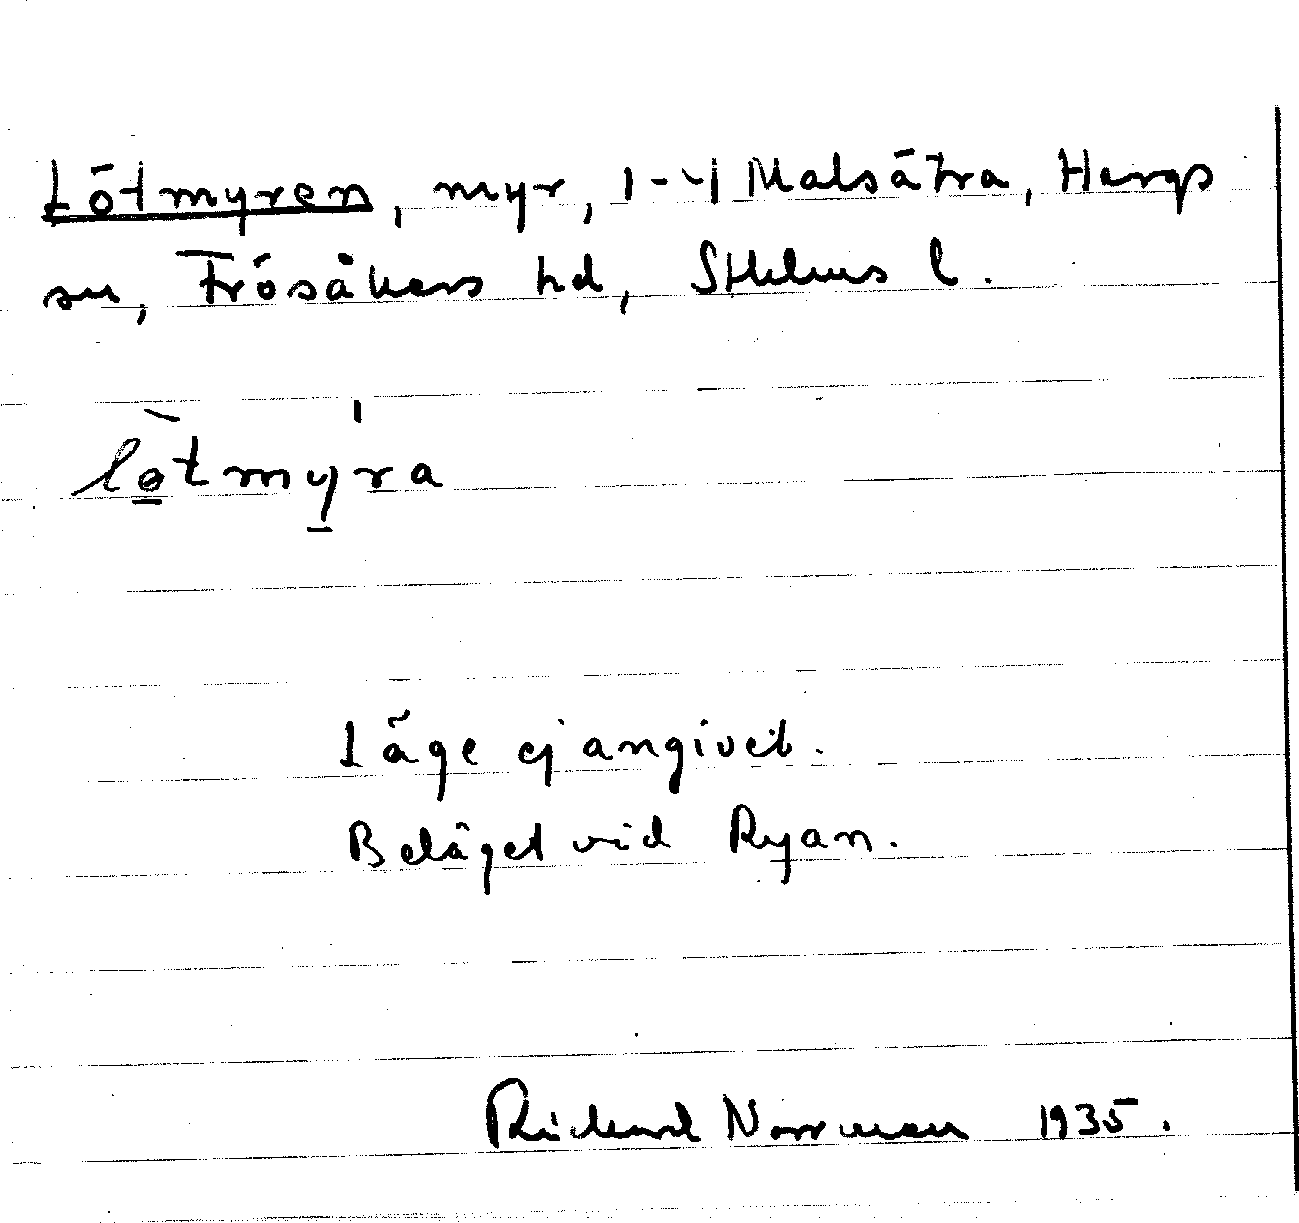 Lötmyren, myr, 1-4 Malsätra, Hargs
sn, Frösåkers hd, Sthlms l.
lo̲tmy̲ra
Läge ej angivet.
Beläget vid Ryan.
Richard Norrman 1935.